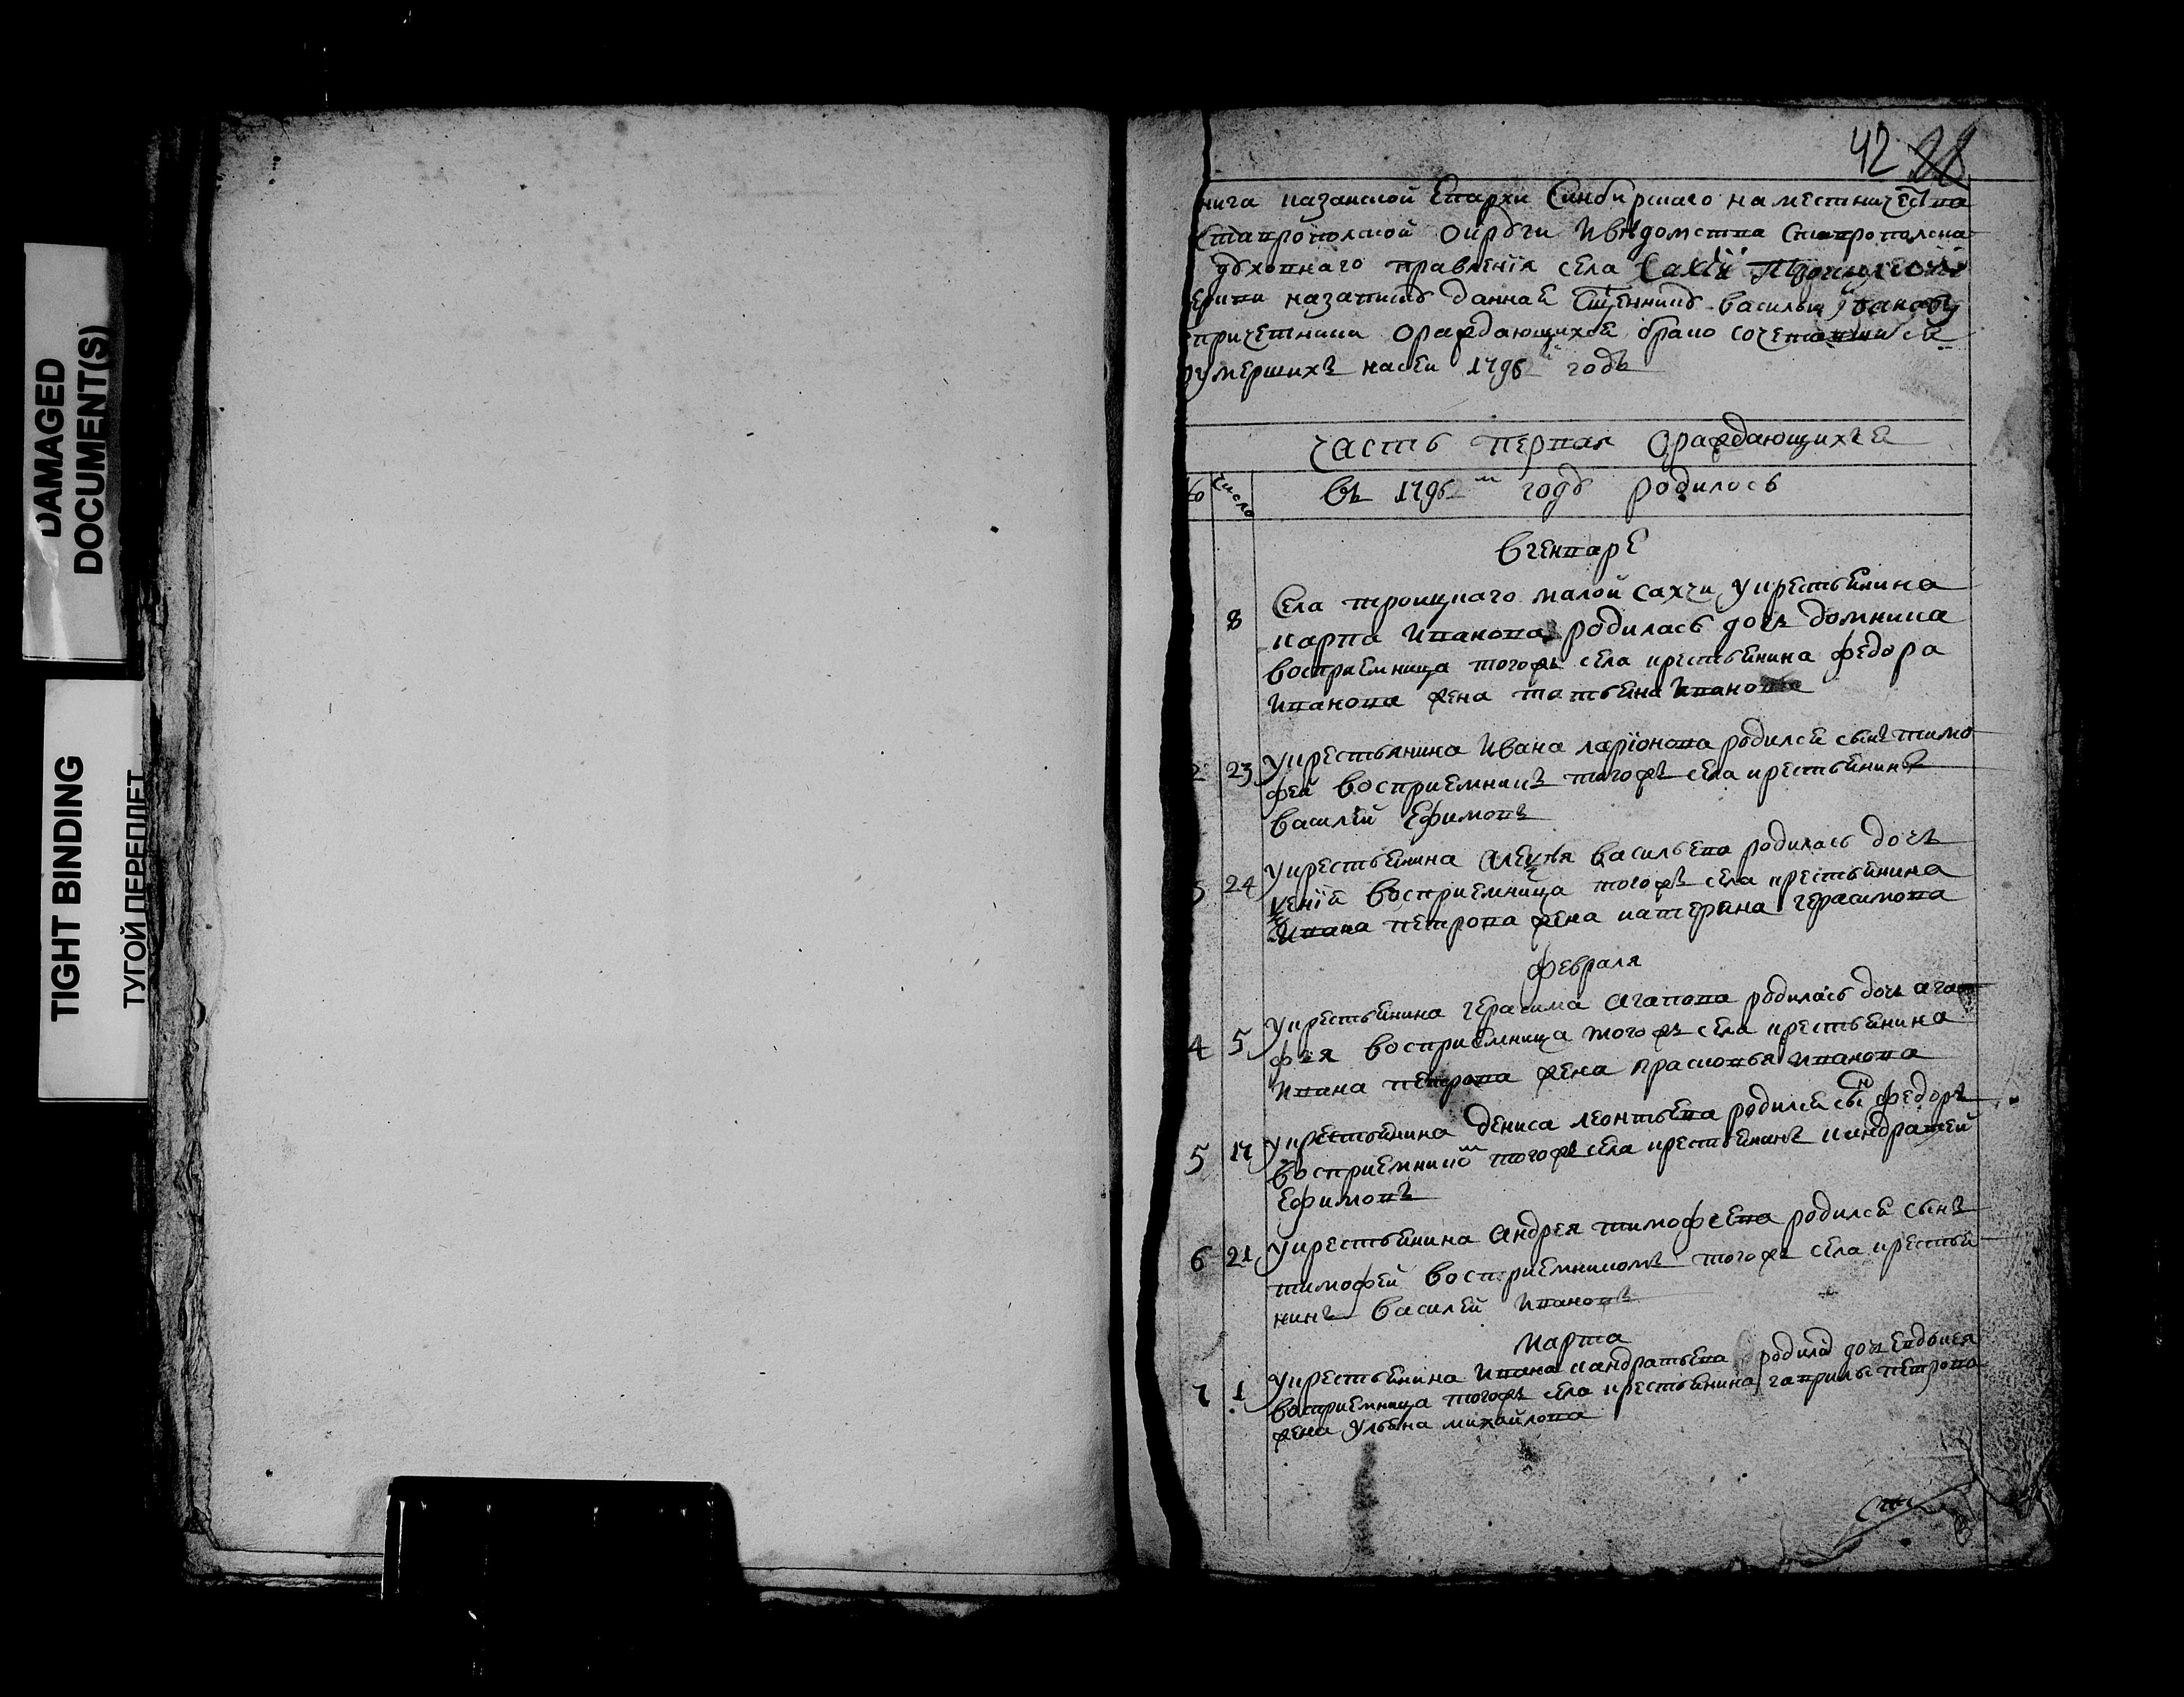 DAMAGED
DOCUMENT(S)
TIGHT BINDING
ТУГОЙ ПЕРЕПЛЕТ
42
нига казанской Епархи Синбирскаго наместничества
Ставрополской округи иведомства Ставрополска
духовнаго правления села Сахчи
назаписку данная сщеннику василью иванову
причетники ораждающихся, брако сочетавшися
умерших насеи 1792 годъ
часть первая ораждающихся
число
въ 1792м году родилось
вгенваре
8 села троицкаго малой сахчи укрестьянина
карпа иванова родилась дочь домника
восприемница тогожъ села крестьянина федора
иванова жена татьяна иванова
2 23 укрестьянина ивана ларионова родился сынъ тимо
фей восприемникъ тогожъ села крестьянинъ
василей ефимовъ
3 24 укрестьянина алексея васильева родилась дочь
ксения восприемница тогожъ села крестьянина
ивана петрова жена катерина герасимова
февраля
4 5 укрестьянина герасима агапова родилась дочь ага
фья восприемница тогожъ села крестьянина
ивана петрова жена прасковья иванова
5 17 укрестьянина дениса леонтьева родился снъ федоръ
восприемником тогожъ села крестьянинъ кандратей
ефимовъ
6 21 укрестьянина андрея тимофеева родился сынъ
тимофей восприемникомъ тогожъ села крестья
нинъ василей ивановъ
марта
7 1 укрестьянина ивана кандратьева родилас дочь евдокея
восприемница тогожъ села крестьянина гаврилы петрова
жена ульяна михайлова